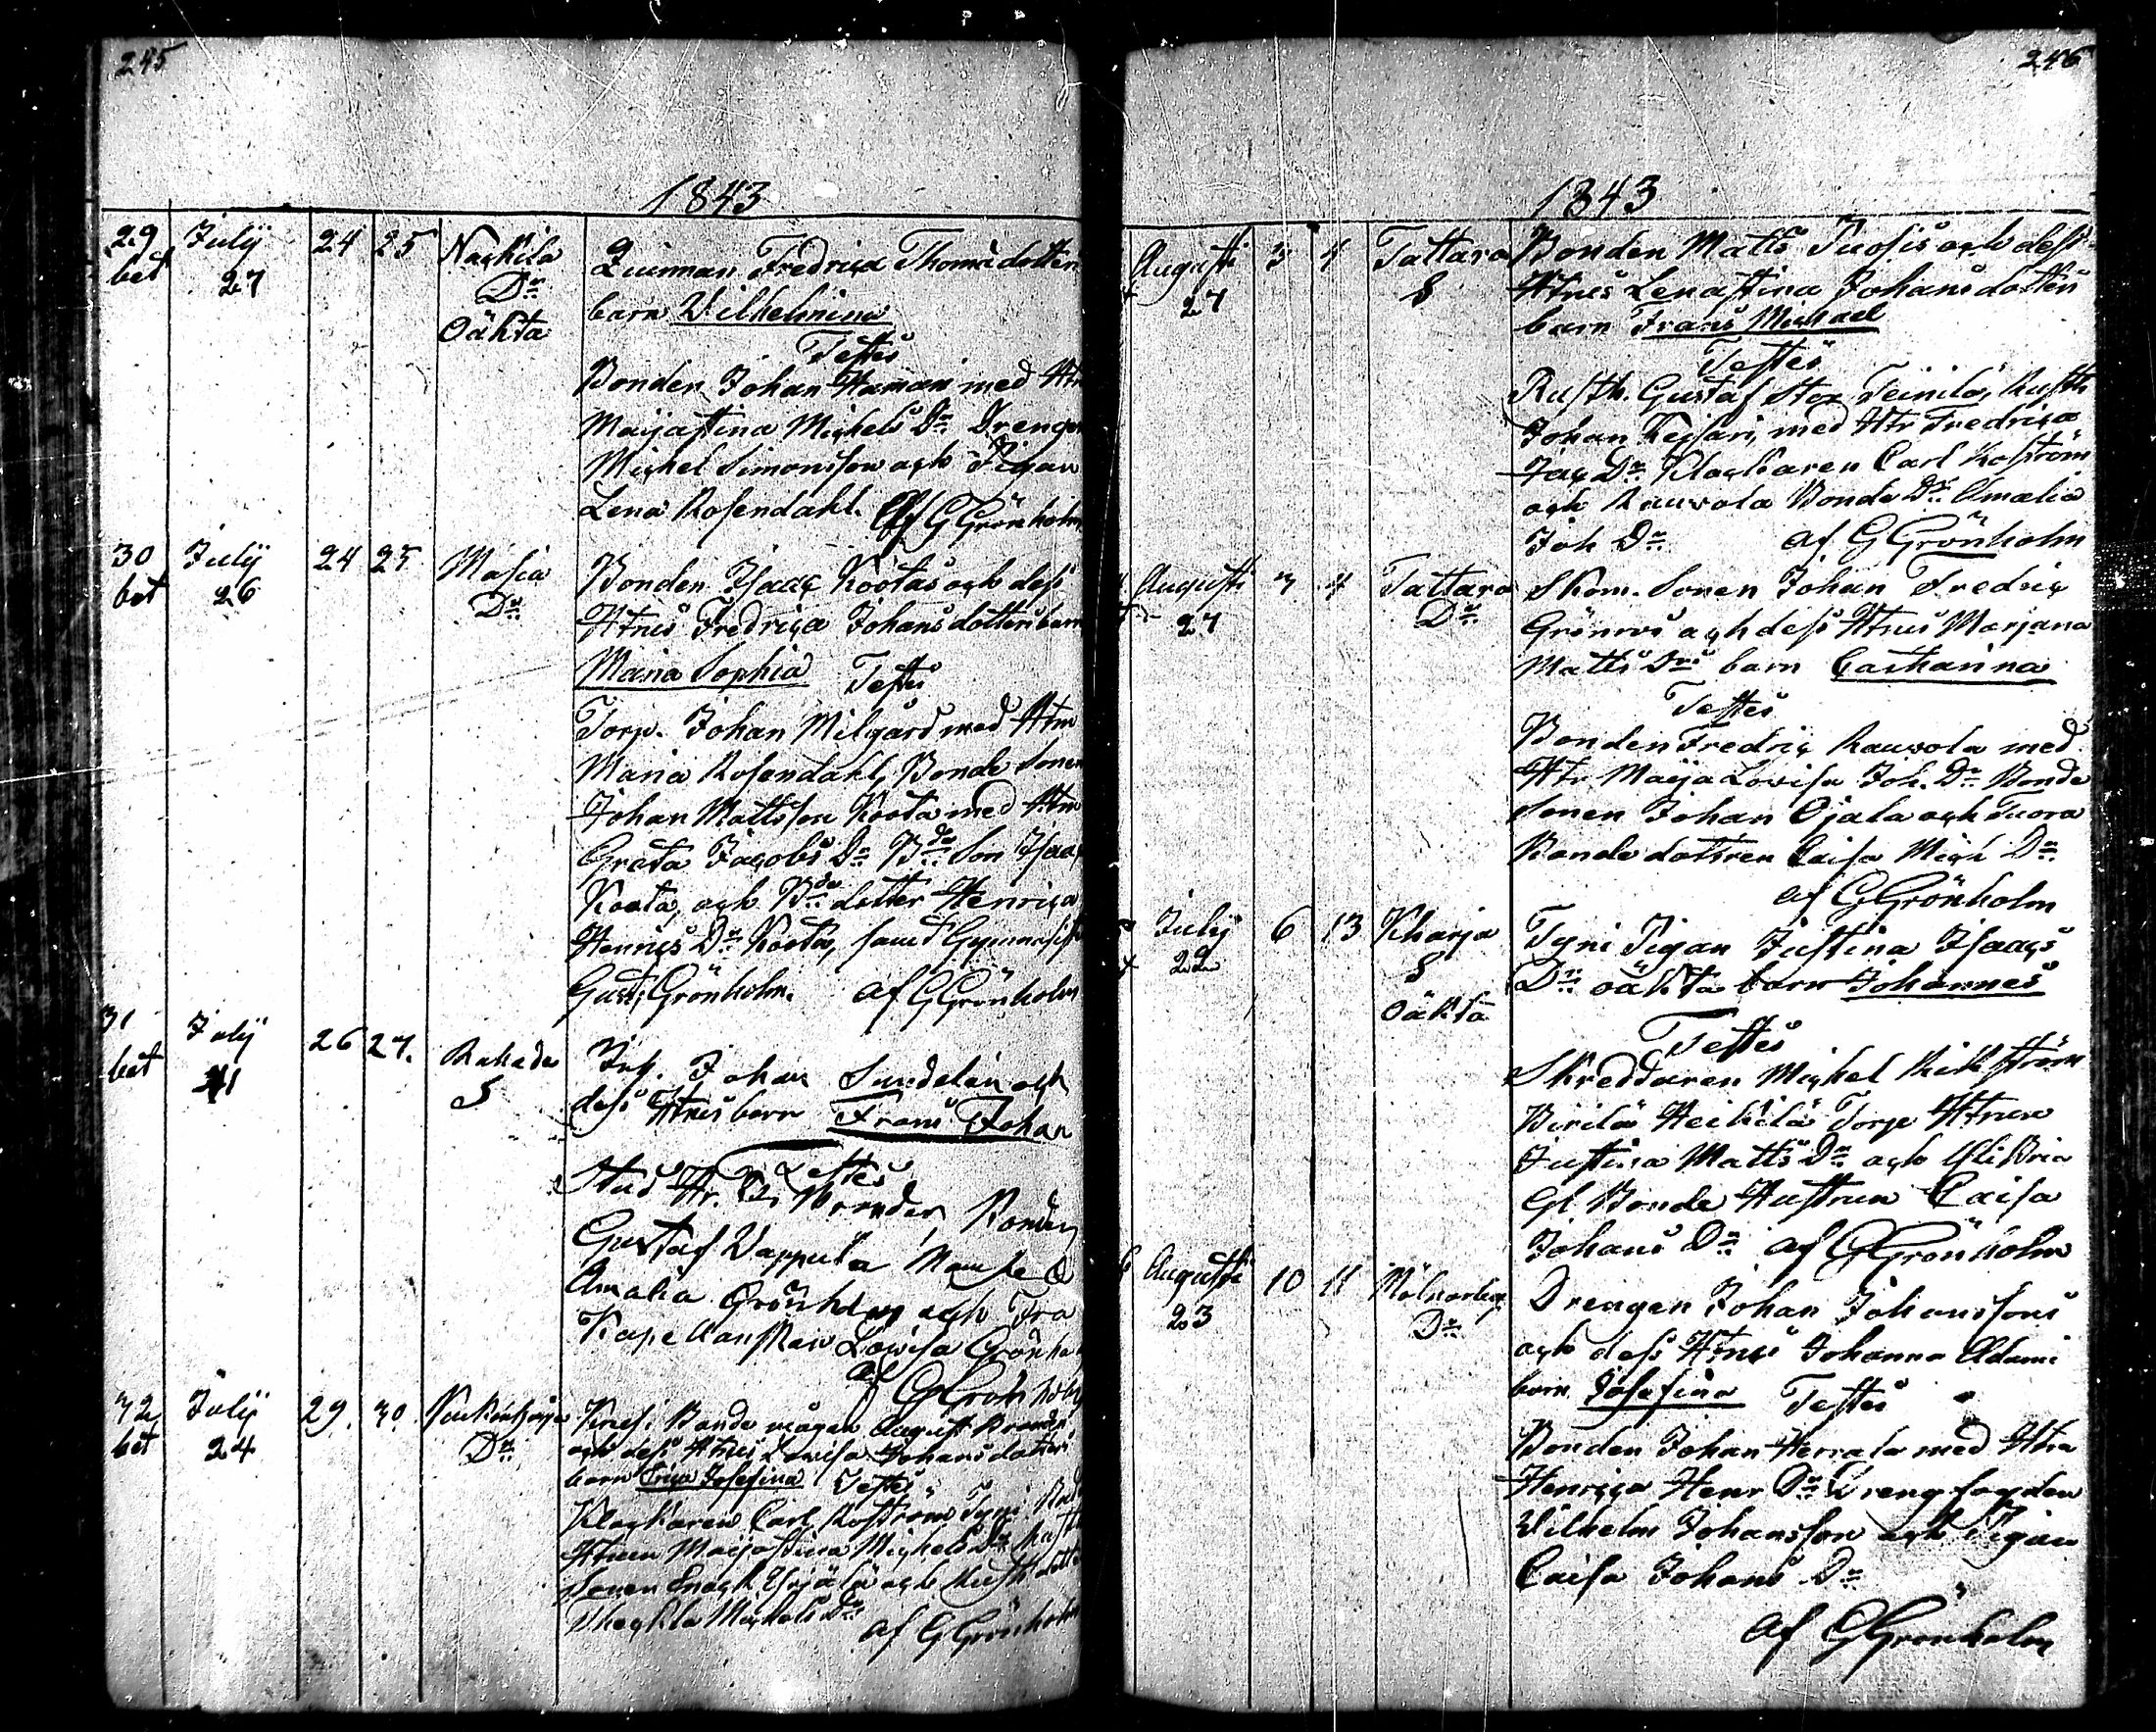 245
1843
29 July 24 25 Nackila Quinnan Fredrica Thomæ dotters
bet 27 Dr. barn Wilhelmina
Oäkta Testes
Bonden Johan Hamani med Htr
Maijastina Michels Dr. Drengen
Michel Simonsson och Pigan
Lena Rosendahl. Af G Grönholm
30 July 24 25 Masia Bonden Isaac Kootas och dess
bet 26 Dr. Htrus Fredrica Johansdotters barn
Maria Sophia Testes
Torp. Johan Milgård med Htru
Maria Rosendahl, Bonde Sonen
Johan Mattsson Koota med Htru
Greta Jacobs Dr. Bde Son Isaac
Koota, och Bde dotter Henrica
Henrics Dr. Koota, samt Gymnasist
Gust. Grönholm. af G Grönholm
31 July 26 27. Johan Sundelin och
bet S dess Htrus barn Frans Johan
Testes
Stud Hr. Bonden
Gustaf Wappula Mamsell
Amalia Grönholm och Fru
Lowisa Grönholm
af G Grönholm
32 July 29. 30. Bonde mågen August
bet 24 Dr. och dess Htrus Lowisa Johansdotters
barn Erica Josefina Testes
Klockaren Carl Roström
Htrun Maijastina Michels Dr. Rusth
Sonen och Rusth dotter
Theckla Michels Dr. af G Grönholm
246
1843
Augusti 3 4 Tattara Bonden Matts Tuosis och dess
27 S Htrus Lenastina Johansdotters
barn Frans Michael
Testes
Rusth. Gustaf Stor Teinilä, Rusth
Johan Keisari, med Htr Fredrica
Jac Dr. Klockaren Carl Roström
och Rauvola Bonde Dr. Amalia
Joh Dr. af G Grönholm
Augusti 3 4 Tattara Skom. Sonen Johan Fredric
27 Dr. Grönroos och dess Htrus Marjana
Matts Drs barn Catharina
Testes
Bonden Fredric Rauvola med
Htr Maija Lovisa Joh. Dr. Bonde
Sonen Johan Ojala och Tuora
Bonde dottren Caisa Mich Dr.
af G Grönholm
July 6 13 Kharja Tyni Pigan Justina Isaacs
22 S Dr. oäkta barn Johannes
oäkta
Testes
Skreddaren Michel
Heikilä Torp Htrun
Justina Matts Dr. och
Gl Bonde Hustrun Caisa
Johans Dr. af G Grönholm
Augusti 10 11 Drengen Johan Johanssons
23 Dr. och dess Htrus Johanna Adami
barn Josefina Testes
Bonden Johan Herrala med Htru
Henrica Henr Dr. Dreng fogden
Wilhelm Johansson och Pigan
Caisa Johans Dr.
af G Grönholm